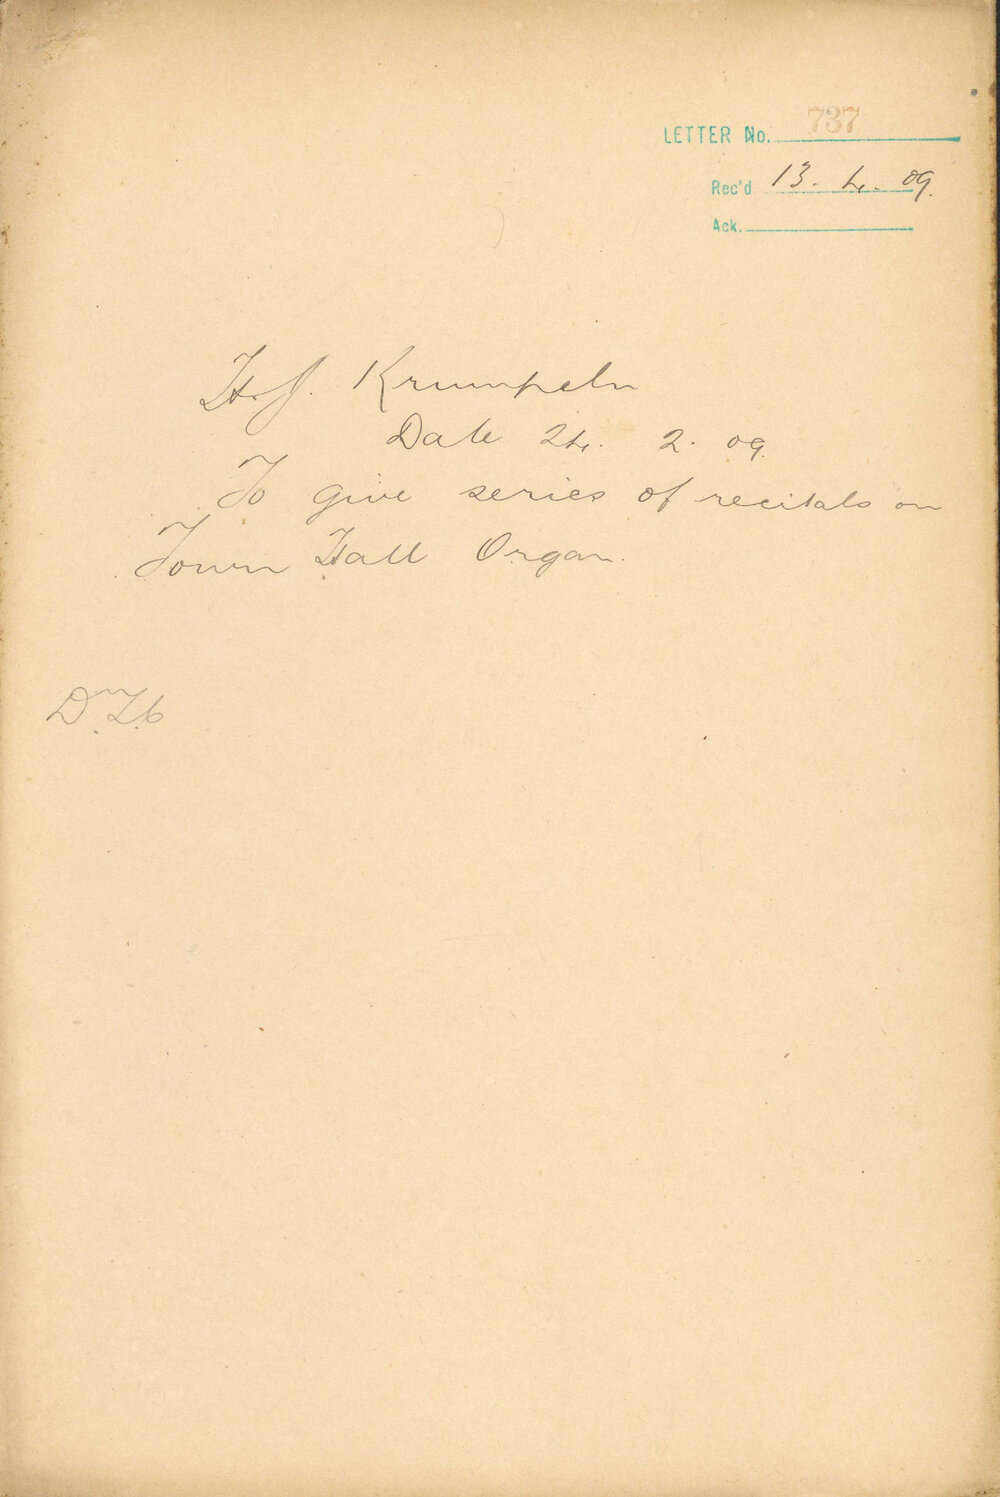 LETTER No. 737
Rec'd 13. 4. 09.
Ack.
H. J. Krumpeln
Date 24. 2. 09.
To give series of recitals on
Town Hall Organ.